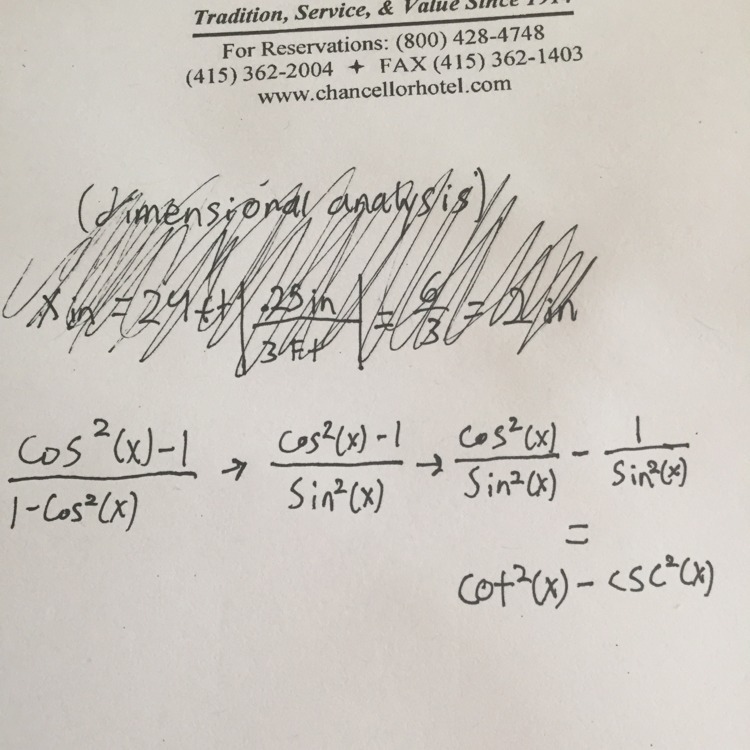 Tradition, Service, & Value Since 191
For Reservations: (800) 428-4748
(415) 362-2004 ✦ FAX (415) 362-1403
www.chancellorhotel.com
(dimensional analysis)
x in = 24 ft | .25 in / 3 Ft | = 6/3 = 2 in
(cos²(x)-1)/(1-cos²(x)) → (cos²(x)-1)/(sin²(x)) → cos²(x)/sin²(x) - 1/sin²(x)
=
cot²(x) - csc²(x)